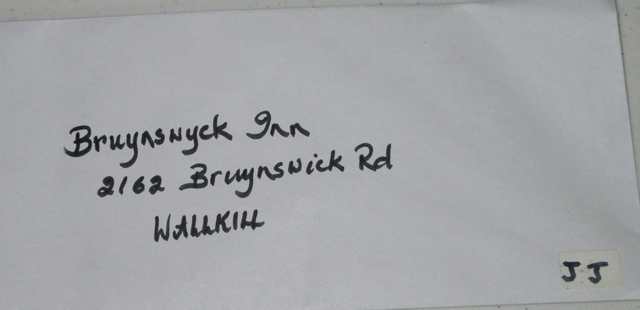 Bruynswyck Inn
2162 Bruynswick Rd
WALLKILL
JJ